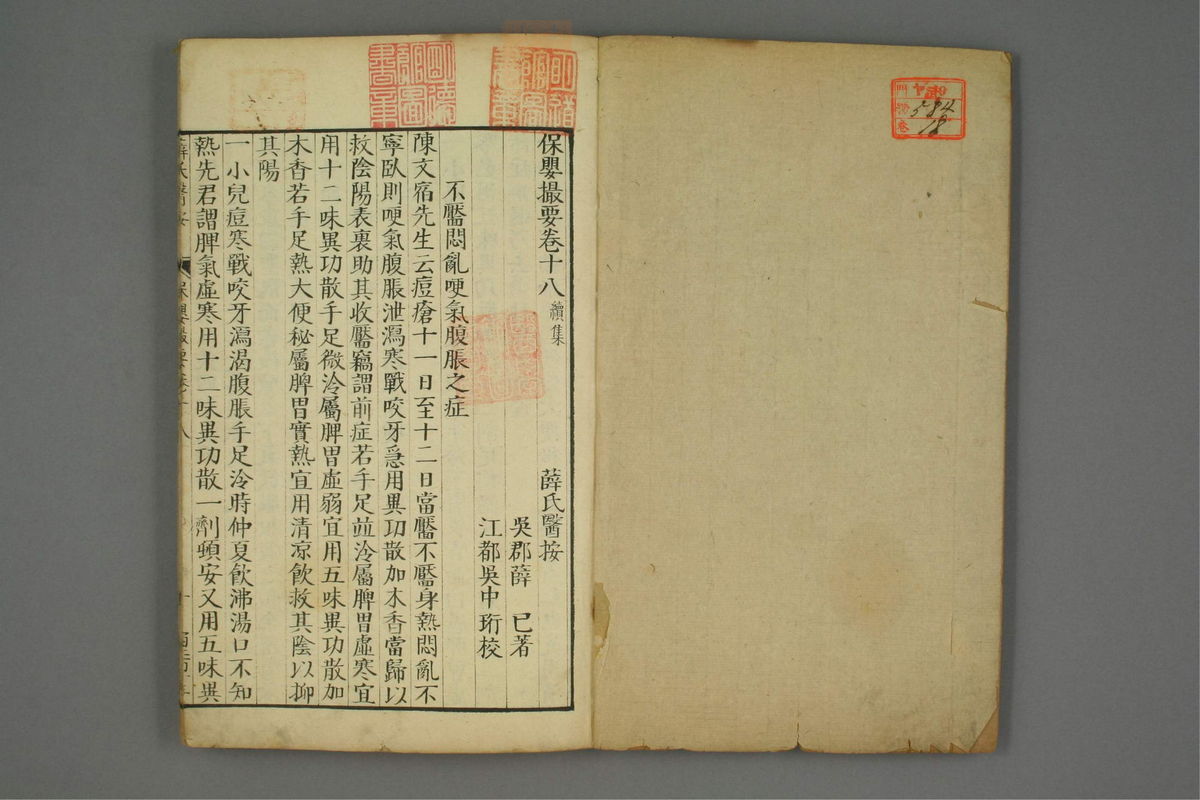 保嬰撮要卷十八 續集 薛氏醫按
吳郡薛 已著
江都吳中珩校
不靨悶亂哽氣腹脹之症
陳文宿先生云痘瘡十一日至十二日當靨不靨身熱悶亂不
寧臥則哽氣腹脹泄瀉寒戰咬牙急用異功散加木香當歸以
救陰陽表裏助其收靨竊謂前症若手足並冷屬脾胃虛寒宜
用十二味異功散手足微冷屬脾胃虛弱宜用五味異功散加
木香若手足熱大便秘屬脾胃實熱宜用清凉飲救其陰以抑
其陽
一小兒痘寒戰咬牙瀉渴腹脹手足冷時仲夏飲沸湯口不知
熱先君謂脾氣虛寒用十二味異功散一劑頓安又用五味異
薛氏醫按 保嬰撮要卷十八 十
584
18